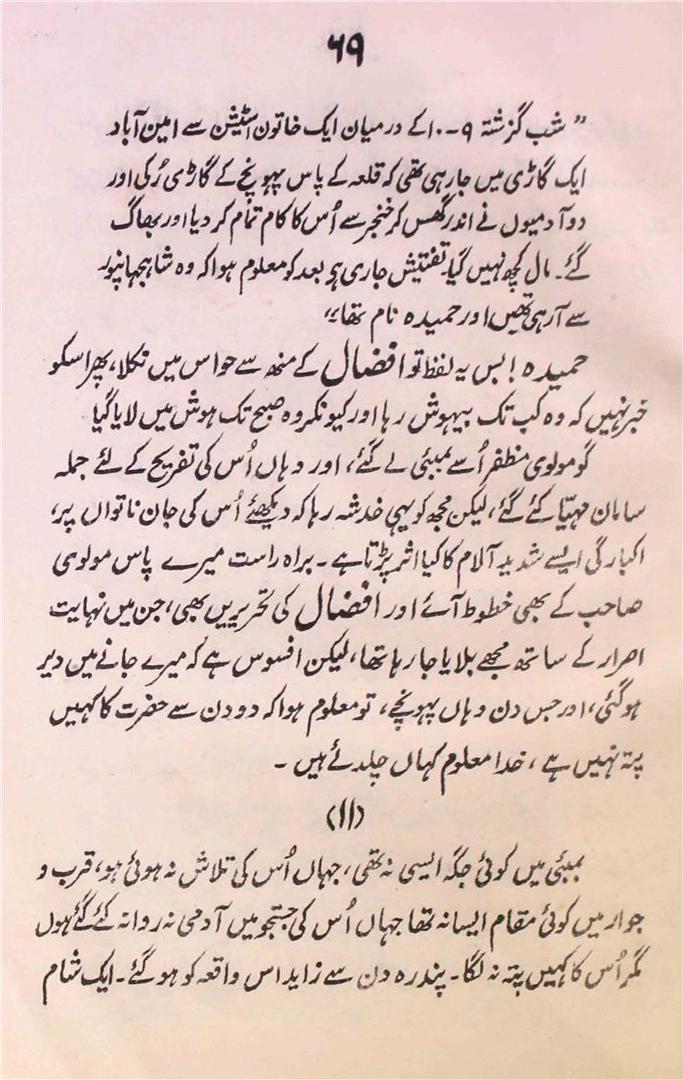 ۶۹
” شب گزشتہ ۹-۱۰ کے درمیان ایک خاتون اسٹیشن سے امین آباد
ایک گاڑی میں جا رہی تھی کہ قلعہ کے پاس پہونچ کے گاڑی رُکی اور
دو آدمیوں نے اندر گھس کر خنجر سے اُس کا کام تمام کر دیا اور بھاگ
گئے۔ مال کچھ نہیں گیا۔ تفتیش جاری ہی بعد کو معلوم ہوا کہ وہ شاہجہانپور
سے آ رہی تھیں اور حمیدہ نام تھا“
حمیدہ! بس یہ لفظ تو افضال کے منھ سے حواس میں نکلا، پھر اسکو
خبر نہیں کہ وہ کب تک بیہوش رہا اور کیونکر وہ صبح تک ہوش میں لایا گیا
گو مولوی مظفر اُسے بمبئی لے گئے، اور وہاں اُس کی تفریح کے لئے جملہ
سامان مہیّا کئے گئے، لیکن مجھ کو یہی خدشہ رہا کہ دیکھئے اُس کی جان ناتواں پر،
اکبارگی ایسے شدید آلام کا کیا اثر پڑتا ہے۔ براہ راست میرے پاس مولوی
صاحب کے بھی خطوط آئے اور افضال کی تحریریں بھی، جن میں نہایت
اصرار کے ساتھ مجھے بلایا جا رہا تھا، لیکن افسوس ہے کہ میرے جانے میں دیر
ہو گئی، اور جس دن وہاں پہونچے، تو معلوم ہوا کہ دو دن سے حضرت کا کہیں
پتہ نہیں ہے، خدا معلوم کہاں چلدئے ہیں۔
(۱۱)
بمبئی میں کوئی جگہ ایسی نہ تھی، جہاں اُس کی تلاش نہ ہوئی ہو، قرب و
جوار میں کوئی مقام ایسا نہ تھا جہاں اُس کی جستجو میں آدمی نہ روانہ کئے گئے ہوں
مگر اُس کا کہیں پتہ نہ لگا۔ پندرہ دن سے زاید اس واقعہ کو ہو گئے۔ ایک شام